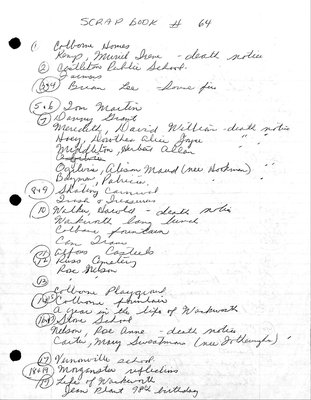 SCRAP BOOK # 64
1 Colborne Homes
Kemp, Muriel Irene - death notice
2 Castleton Public School
Farmers
3+4 Brian Lee - home fire
5+6 Tom Martin
7 Danny Grant
Meredith, David William - death notice
Hoey, Dorothea Alice Joyce " "
Middleton, Herbert Allan " "
Ogilvie, Alison Maud (nee Hockman) "
Bayman, Patricia " "
8+9 Skating Carnival
Trash & Treasures
10 Walker, Harold - death notice
Warkworth lawn
Colborne fountain
Can Tram
11 Casteels
12 Russ Cemetery
Roe Nelson
13 " "
Colborne Playground
Colborne fountain
A year in the life of Warkworth
Stone School
Nelson, Roe Anne - death notice
Carter, Mary Sweetman (nee ) "
17 Vernonville school
18+19 Morganston reflections
19 Life of Warkworth
Jean Plant 98th birthday